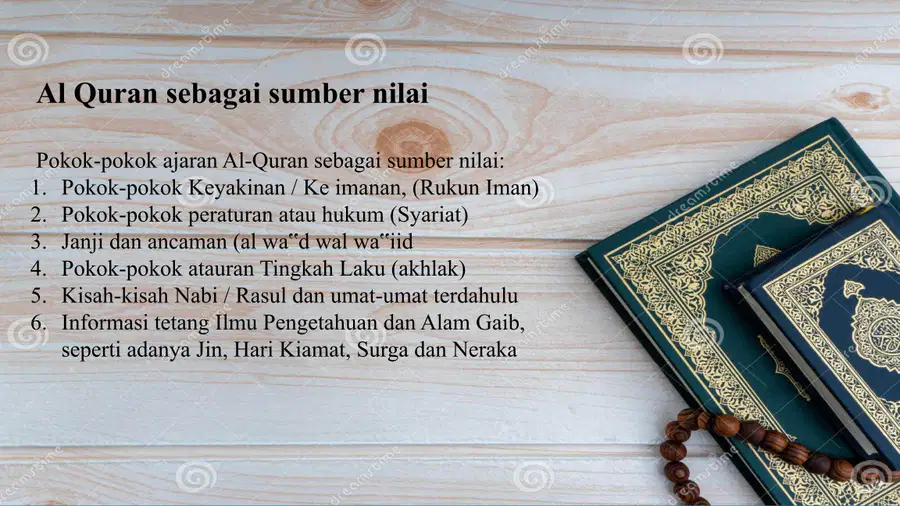 Al Quran sebagai sumber nilai
Pokok-pokok ajaran Al-Quran sebagai sumber nilai:
1. Pokok-pokok Keyakinan / Ke imanan, (Rukun Iman)
2. Pokok-pokok peraturan atau hukum (Syariat)
3. Janji dan ancaman (al wa‟d wal wa‟iid
4. Pokok-pokok atauran Tingkah Laku (akhlak)
5. Kisah-kisah Nabi / Rasul dan umat-umat terdahulu
6. Informasi tetang Ilmu Pengetahuan dan Alam Gaib,
seperti adanya Jin, Hari Kiamat, Surga dan Neraka
dreamstime